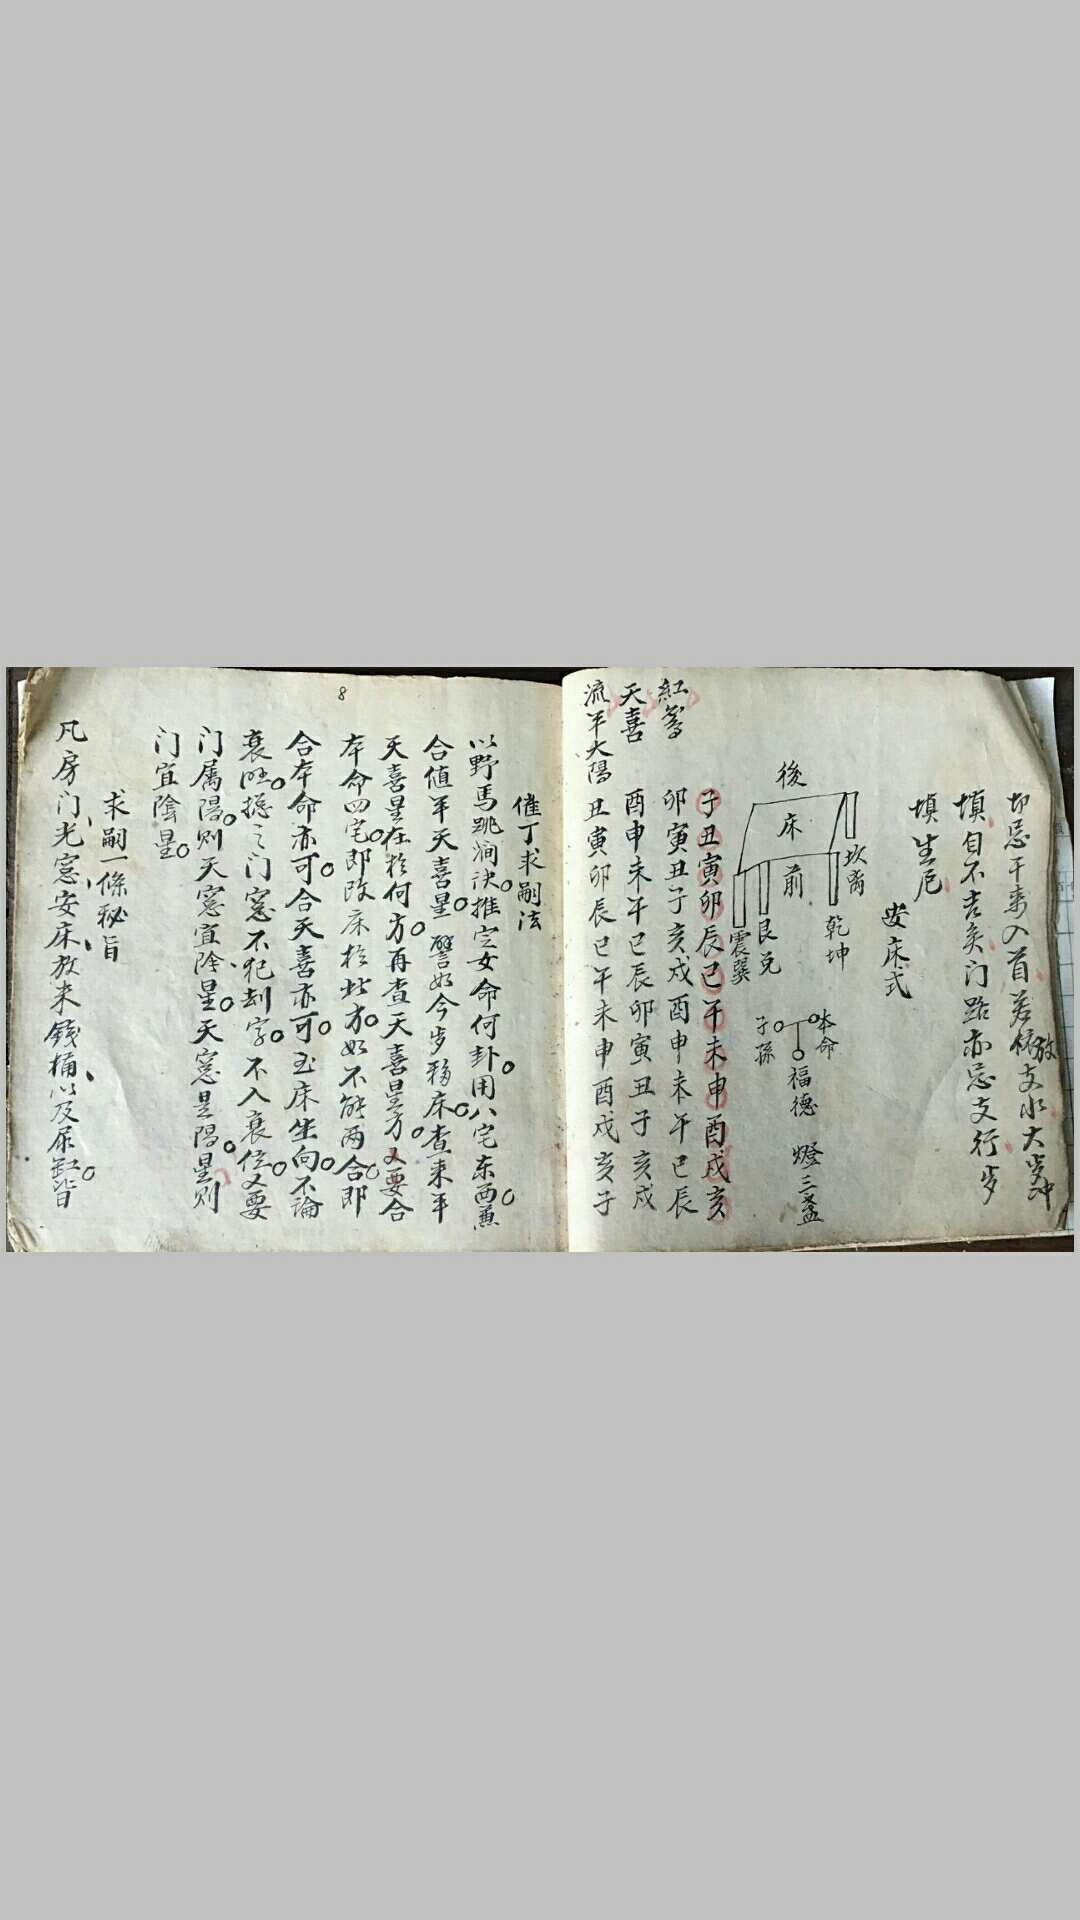 切忌干来入首若依放支水大步冲
填自不吉矣门路亦忌支行步
填生厄
安床式
後
床
前
坎离
乾坤
艮兑
震巽
本命
子孫
福德
燈三盞
子丑寅卯辰巳午未申酉戍亥
紅鸞
卯寅丑子亥戍酉申未午巳辰
天喜
酉申未午巳辰卯寅丑子亥戍
流年太陽
丑寅卯辰巳午未申酉戍亥子
8
催丁求嗣法
以野馬跳澗訣推定女命何卦用八宅东西兼
合值年天喜星譬如今步移床查来年
天喜星在於何方再查天喜星方又要合
本命四宅即改床於此方如不能两合即
合本命亦可合天喜亦可至床坐向不論
衰旺揔之门窓不犯刦字不入衰位又要
门属陽则天窓宜陰星天窓是陽星则
门宜陰星
求嗣一條秘旨
凡房门光窓安床放来錢桶以及尿缸皆